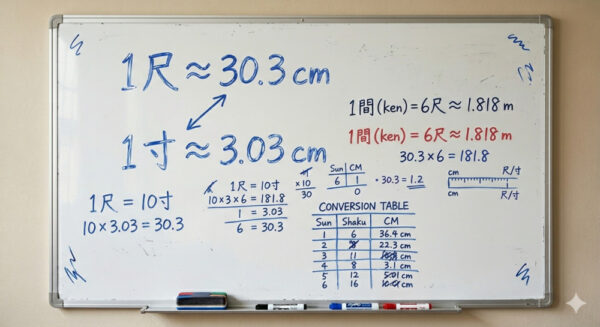 1尺 ≈ 30.3 cm
1寸 ≈ 3.03 cm
1間 (ken) = 6尺 ≈ 1.818 m
1間 (ken) = 6尺 ≈ 1.818 m
30.3 × 6 = 181.8
1尺 = 10寸
10 × 3.03 = 30.3
1尺 = 10寸
10 × 3 × 6 = 181.8
1 = 3.03
6 = 30.3
×10
30
Sun CM
6 1
0
· 30.3 = 1.2
cm R/寸
cm R/寸
CONVERSION TABLE
Sun Shaku CM
1 6 36.4 cm
2 22.3 cm
3 11 cm
4 8 3.1 cm
5 12 cm
6 16 cm